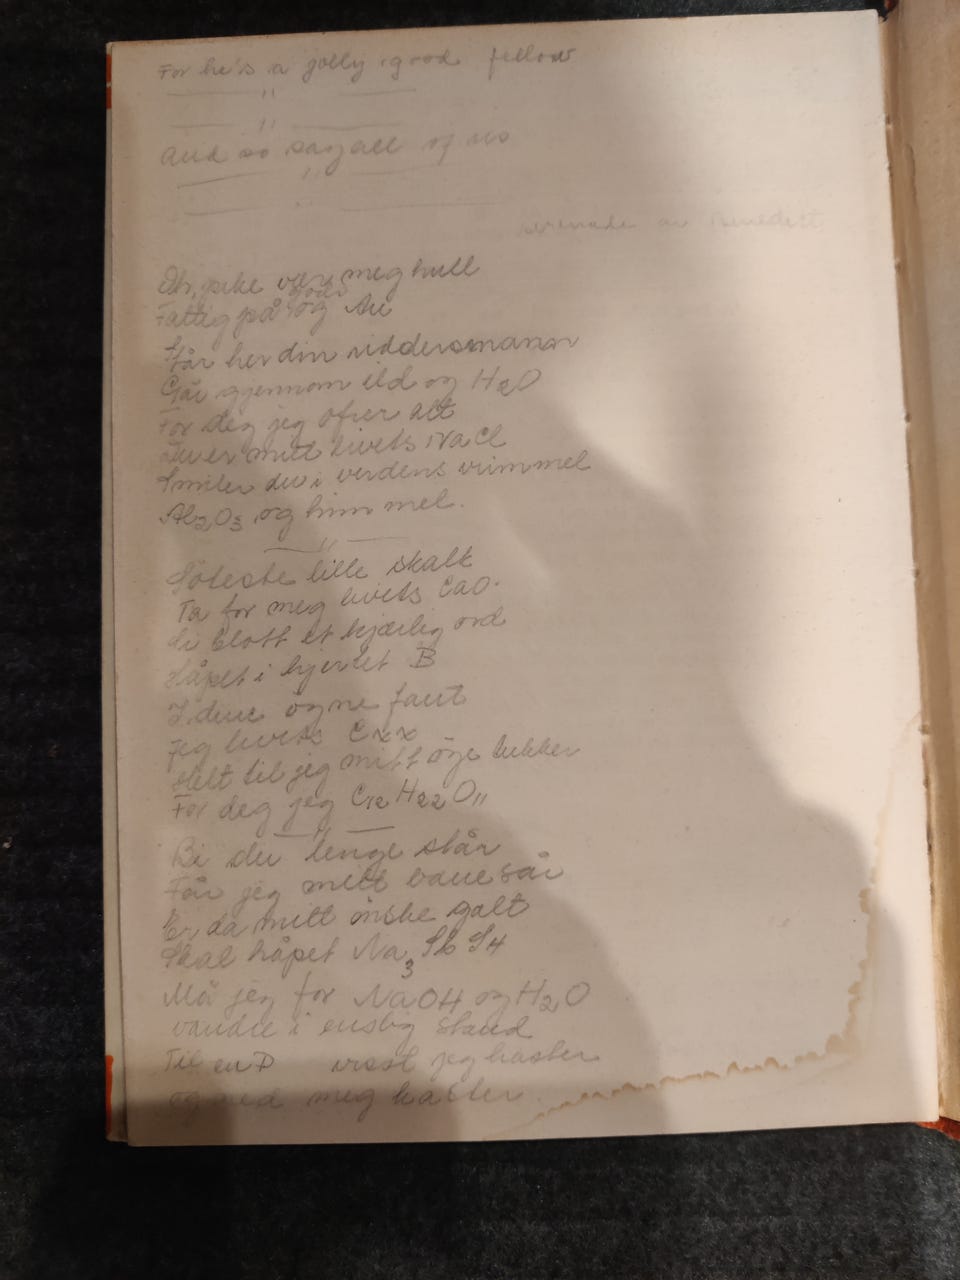 For he's a jolly good fellow
— " —
— " —
And so say all of us
— " —
— " —
serenade av Benedikt
Åh, pike vær meg hull
Fattig på gods og Au
Står her din riddersmann
Går gjennom ild og H2O
For deg jeg ofrer alt
Du er mitt livets NaCl
Smiler du i verdens vrimmel
Al2O3 og himmel.
— " —
Söteste lille skalk
Ta for meg livets CaO.
Si blott et kjærlig ord
Håpet i hjertet B
I dine øyne fant
Jeg livets Cxx
Helt til jeg mitt öye lukker
For deg jeg C12H22O11
— " —
Bi du lenge slår
Får jeg mitt banesår
Er da mitt önske galt
Skal håpet Na3SbS4
Må jeg for NaOH og H2O
vandre i enslig stand
Til en P visst jeg haster
og ned meg kaster.